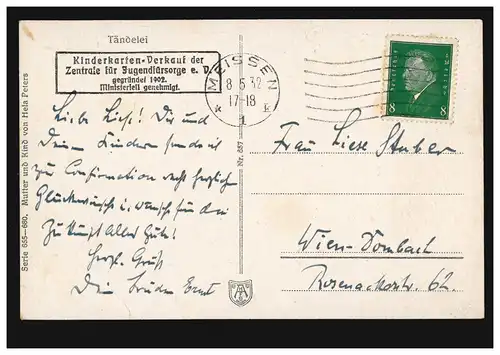 Tändelei
Kinderkarten-Verkauf der
Zentrale für Jugendfürsorge e. V.
gegründet 1902.
Ministeriell genehmigt.
MEISSEN
8 5 32
17-18
* 1 *
8 8
Liebe Lisl! Dir und
Deinen Kindern sende ich
zur Confirmation recht herzlich
Glückwünsche u. wünsche für die
Zukunft Alles Gute!
Herzl. Gruß
Dein Bruder Ernst
Frau Liese Stuber
Wien-Dornbach
62.
Nr. 657
Serie 655—660. Mutter und Kind von Hela Peters